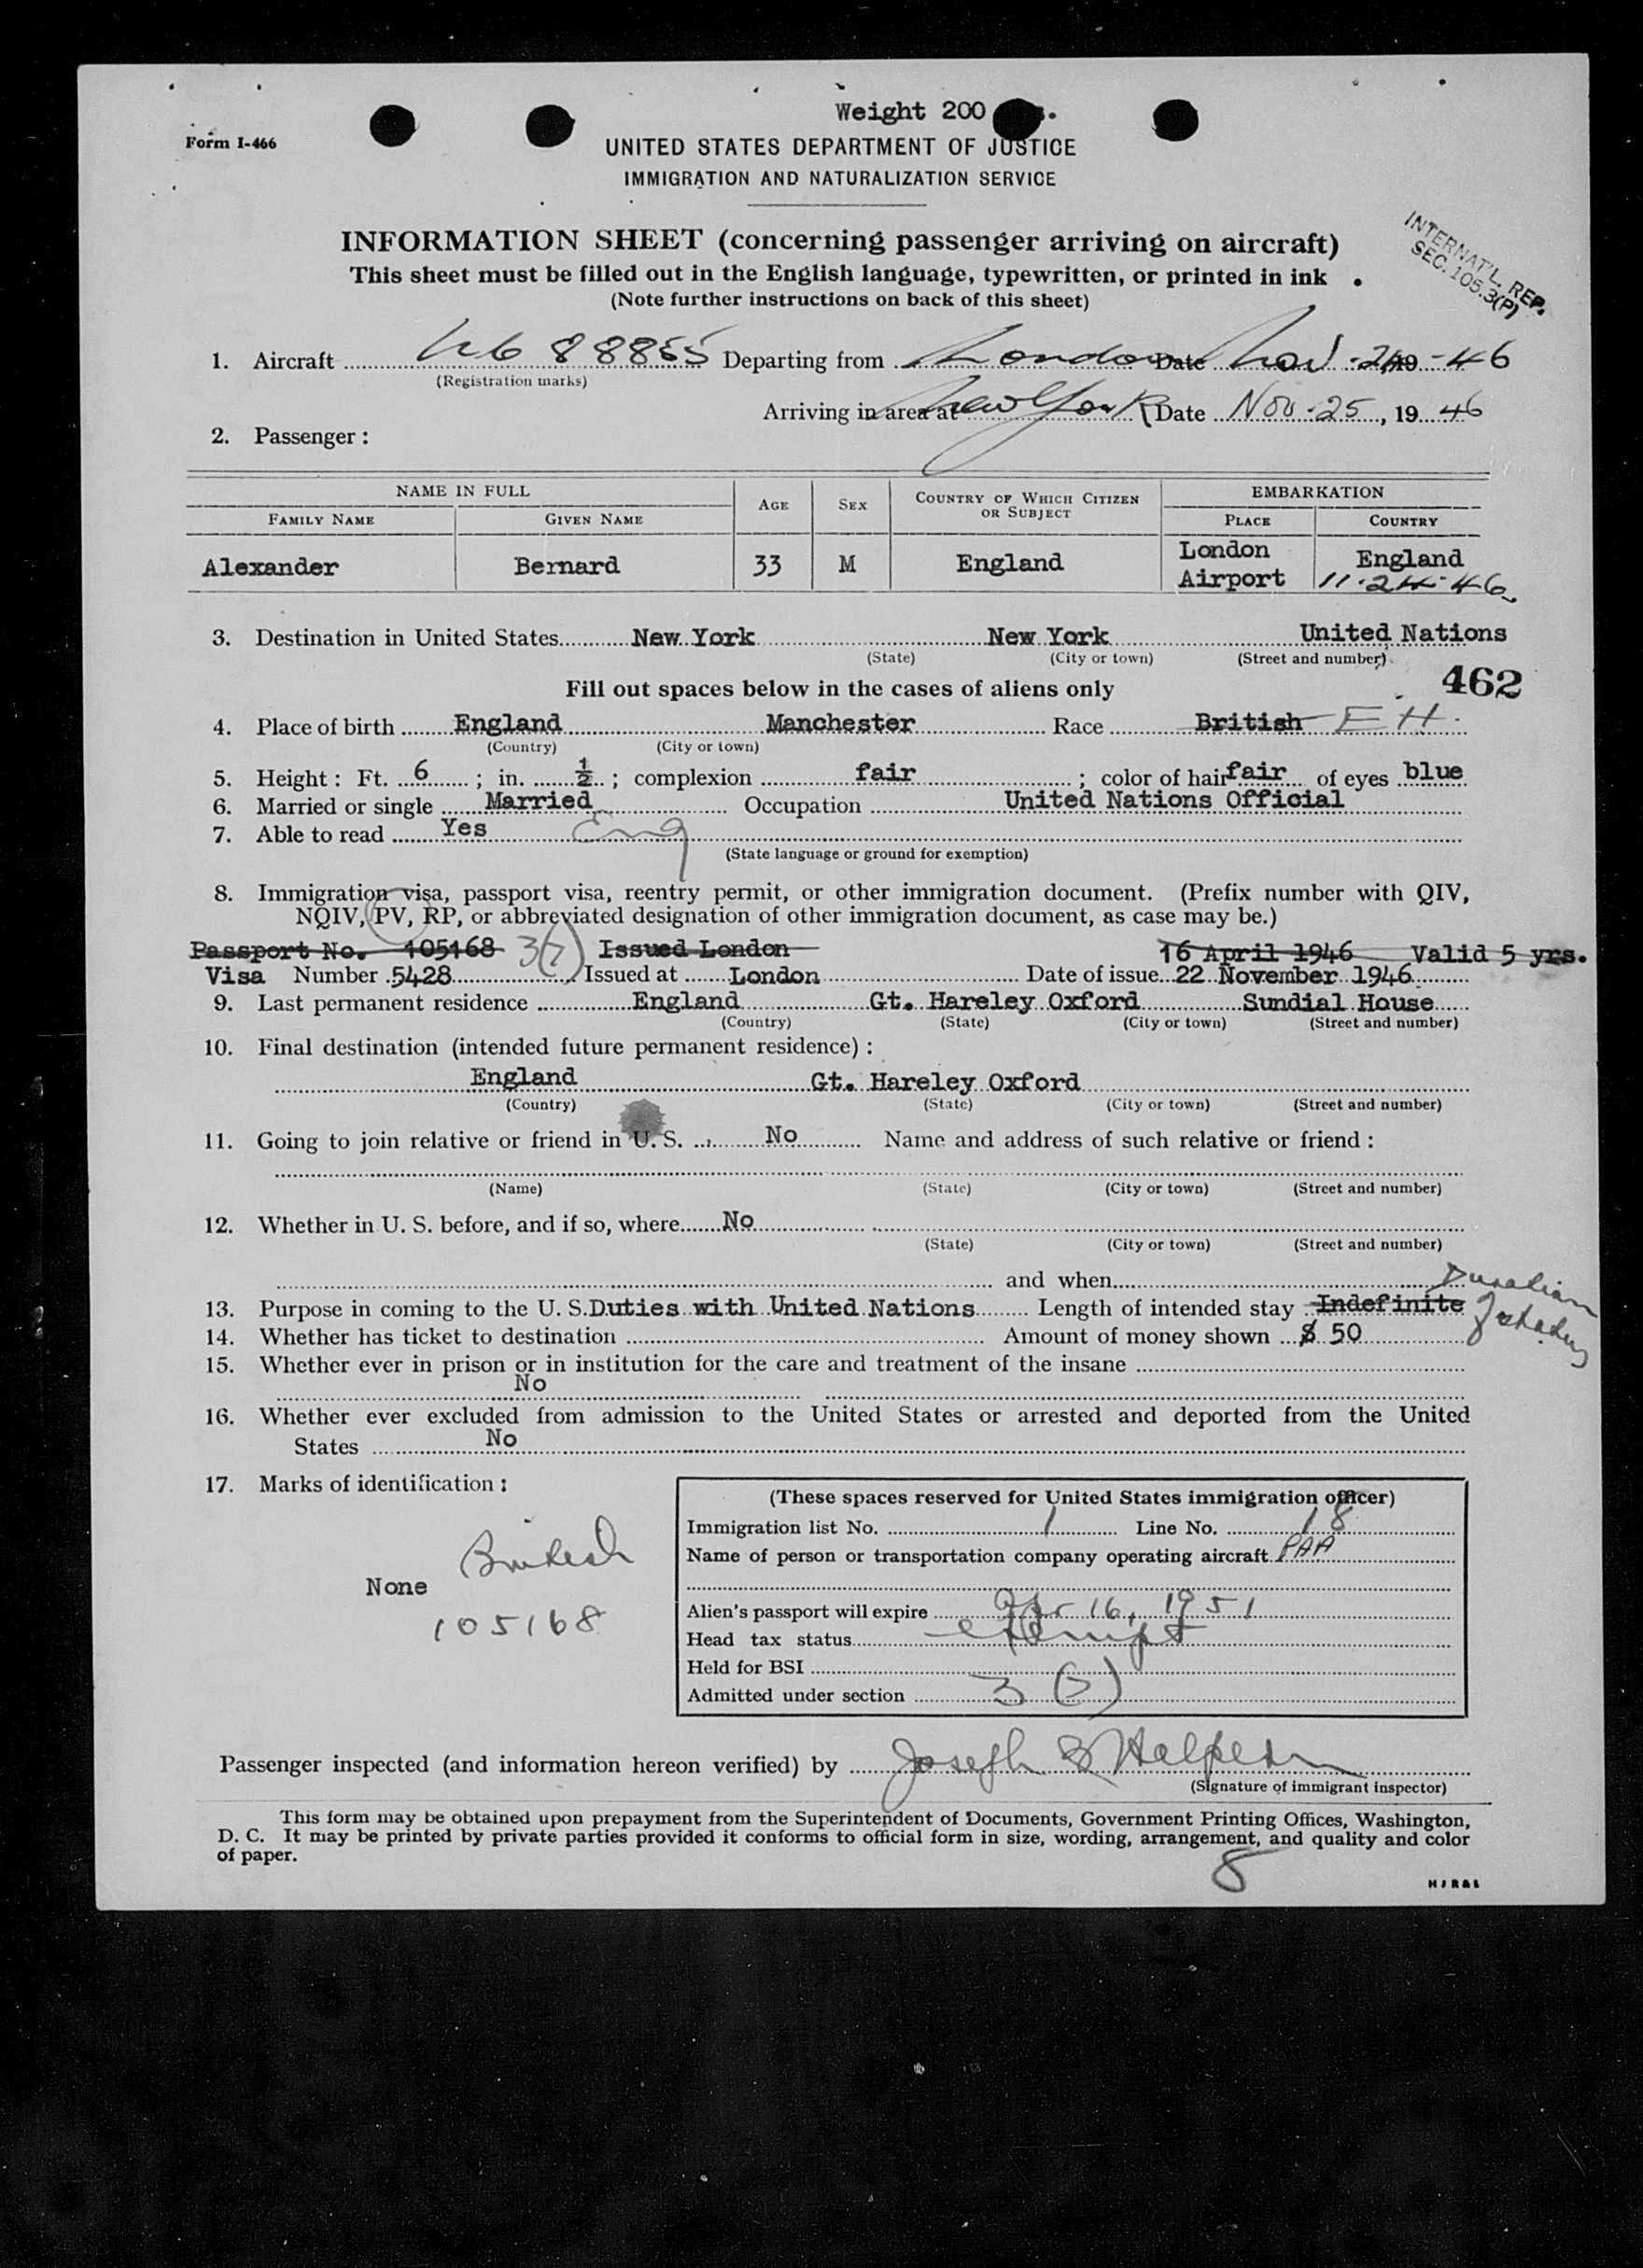 Weight 200
Form I-466
UNITED STATES DEPARTMENT OF JUSTICE
IMMIGRATION AND NATURALIZATION SERVICE
INTERNAT'L. REP.
SEC. 105.3(P)
INFORMATION SHEET (concerning passenger arriving on aircraft)
This sheet must be filled out in the English language, typewritten, or printed in ink
(Note further instructions on back of this sheet)
1. Aircraft 88855 Departing from London Date Nov. 24 19 -46
(Registration marks)
Arriving in area at New York Date Nov. 25, 19 46
2. Passenger:
NAME IN FULL AGE SEX COUNTRY OF WHICH CITIZEN OR SUBJECT EMBARKATION
FAMILY NAME GIVEN NAME PLACE COUNTRY
Alexander Bernard 33 M England London Airport England
11-24-46
3. Destination in United States New York New York United Nations
(State) (City or town) (Street and number)
462
Fill out spaces below in the cases of aliens only
4. Place of birth England Manchester Race British EH.
(Country) (City or town)
5. Height: Ft. 6; in. 1/2; complexion fair; color of hair fair of eyes blue
6. Married or single Married Occupation United Nations Official
7. Able to read Yes Eng
(State language or ground for exemption)
8. Immigration visa, passport visa, reentry permit, or other immigration document. (Prefix number with QIV,
NQIV, PV, RP, or abbreviated designation of other immigration document, as case may be.)
Passport No. 105168 3(7) Issued London 16 April 1946 Valid 5 yrs.
Visa Number 5428 Issued at London Date of issue 22 November 1946
9. Last permanent residence England Gt. Hareley Oxford Sundial House
(Country) (State) (City or town) (Street and number)
10. Final destination (intended future permanent residence):
England Gt. Hareley Oxford
(Country) (State) (City or town) (Street and number)
11. Going to join relative or friend in U. S. No Name and address of such relative or friend:
(Name) (State) (City or town) (Street and number)
12. Whether in U. S. before, and if so, where No
(State) (City or town) (Street and number)
and when
13. Purpose in coming to the U. S. Duties with United Nations Length of intended stay Indefinite Duration
14. Whether has ticket to destination Amount of money shown $ 50
15. Whether ever in prison or in institution for the care and treatment of the insane
No
16. Whether ever excluded from admission to the United States or arrested and deported from the United
States No
17. Marks of identification:
British
None
105168
(These spaces reserved for United States immigration officer)
Immigration list No. 1 Line No. 18
Name of person or transportation company operating aircraft PAA
Alien's passport will expire Apr 16, 1951
Head tax status exempt
Held for BSI
Admitted under section 3 (7)
Passenger inspected (and information hereon verified) by Joseph Halpern
(Signature of immigrant inspector)
This form may be obtained upon prepayment from the Superintendent of Documents, Government Printing Offices, Washington,
D. C. It may be printed by private parties provided it conforms to official form in size, wording, arrangement, and quality and color
of paper.
8